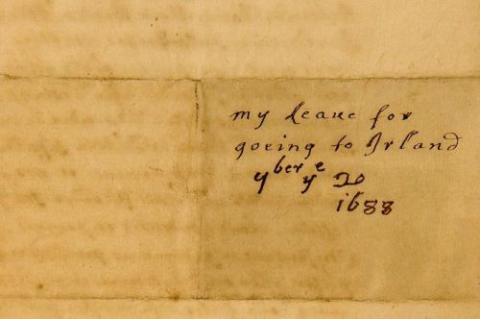 my leaue for
goeing to Irland
9ber ye 20
1688